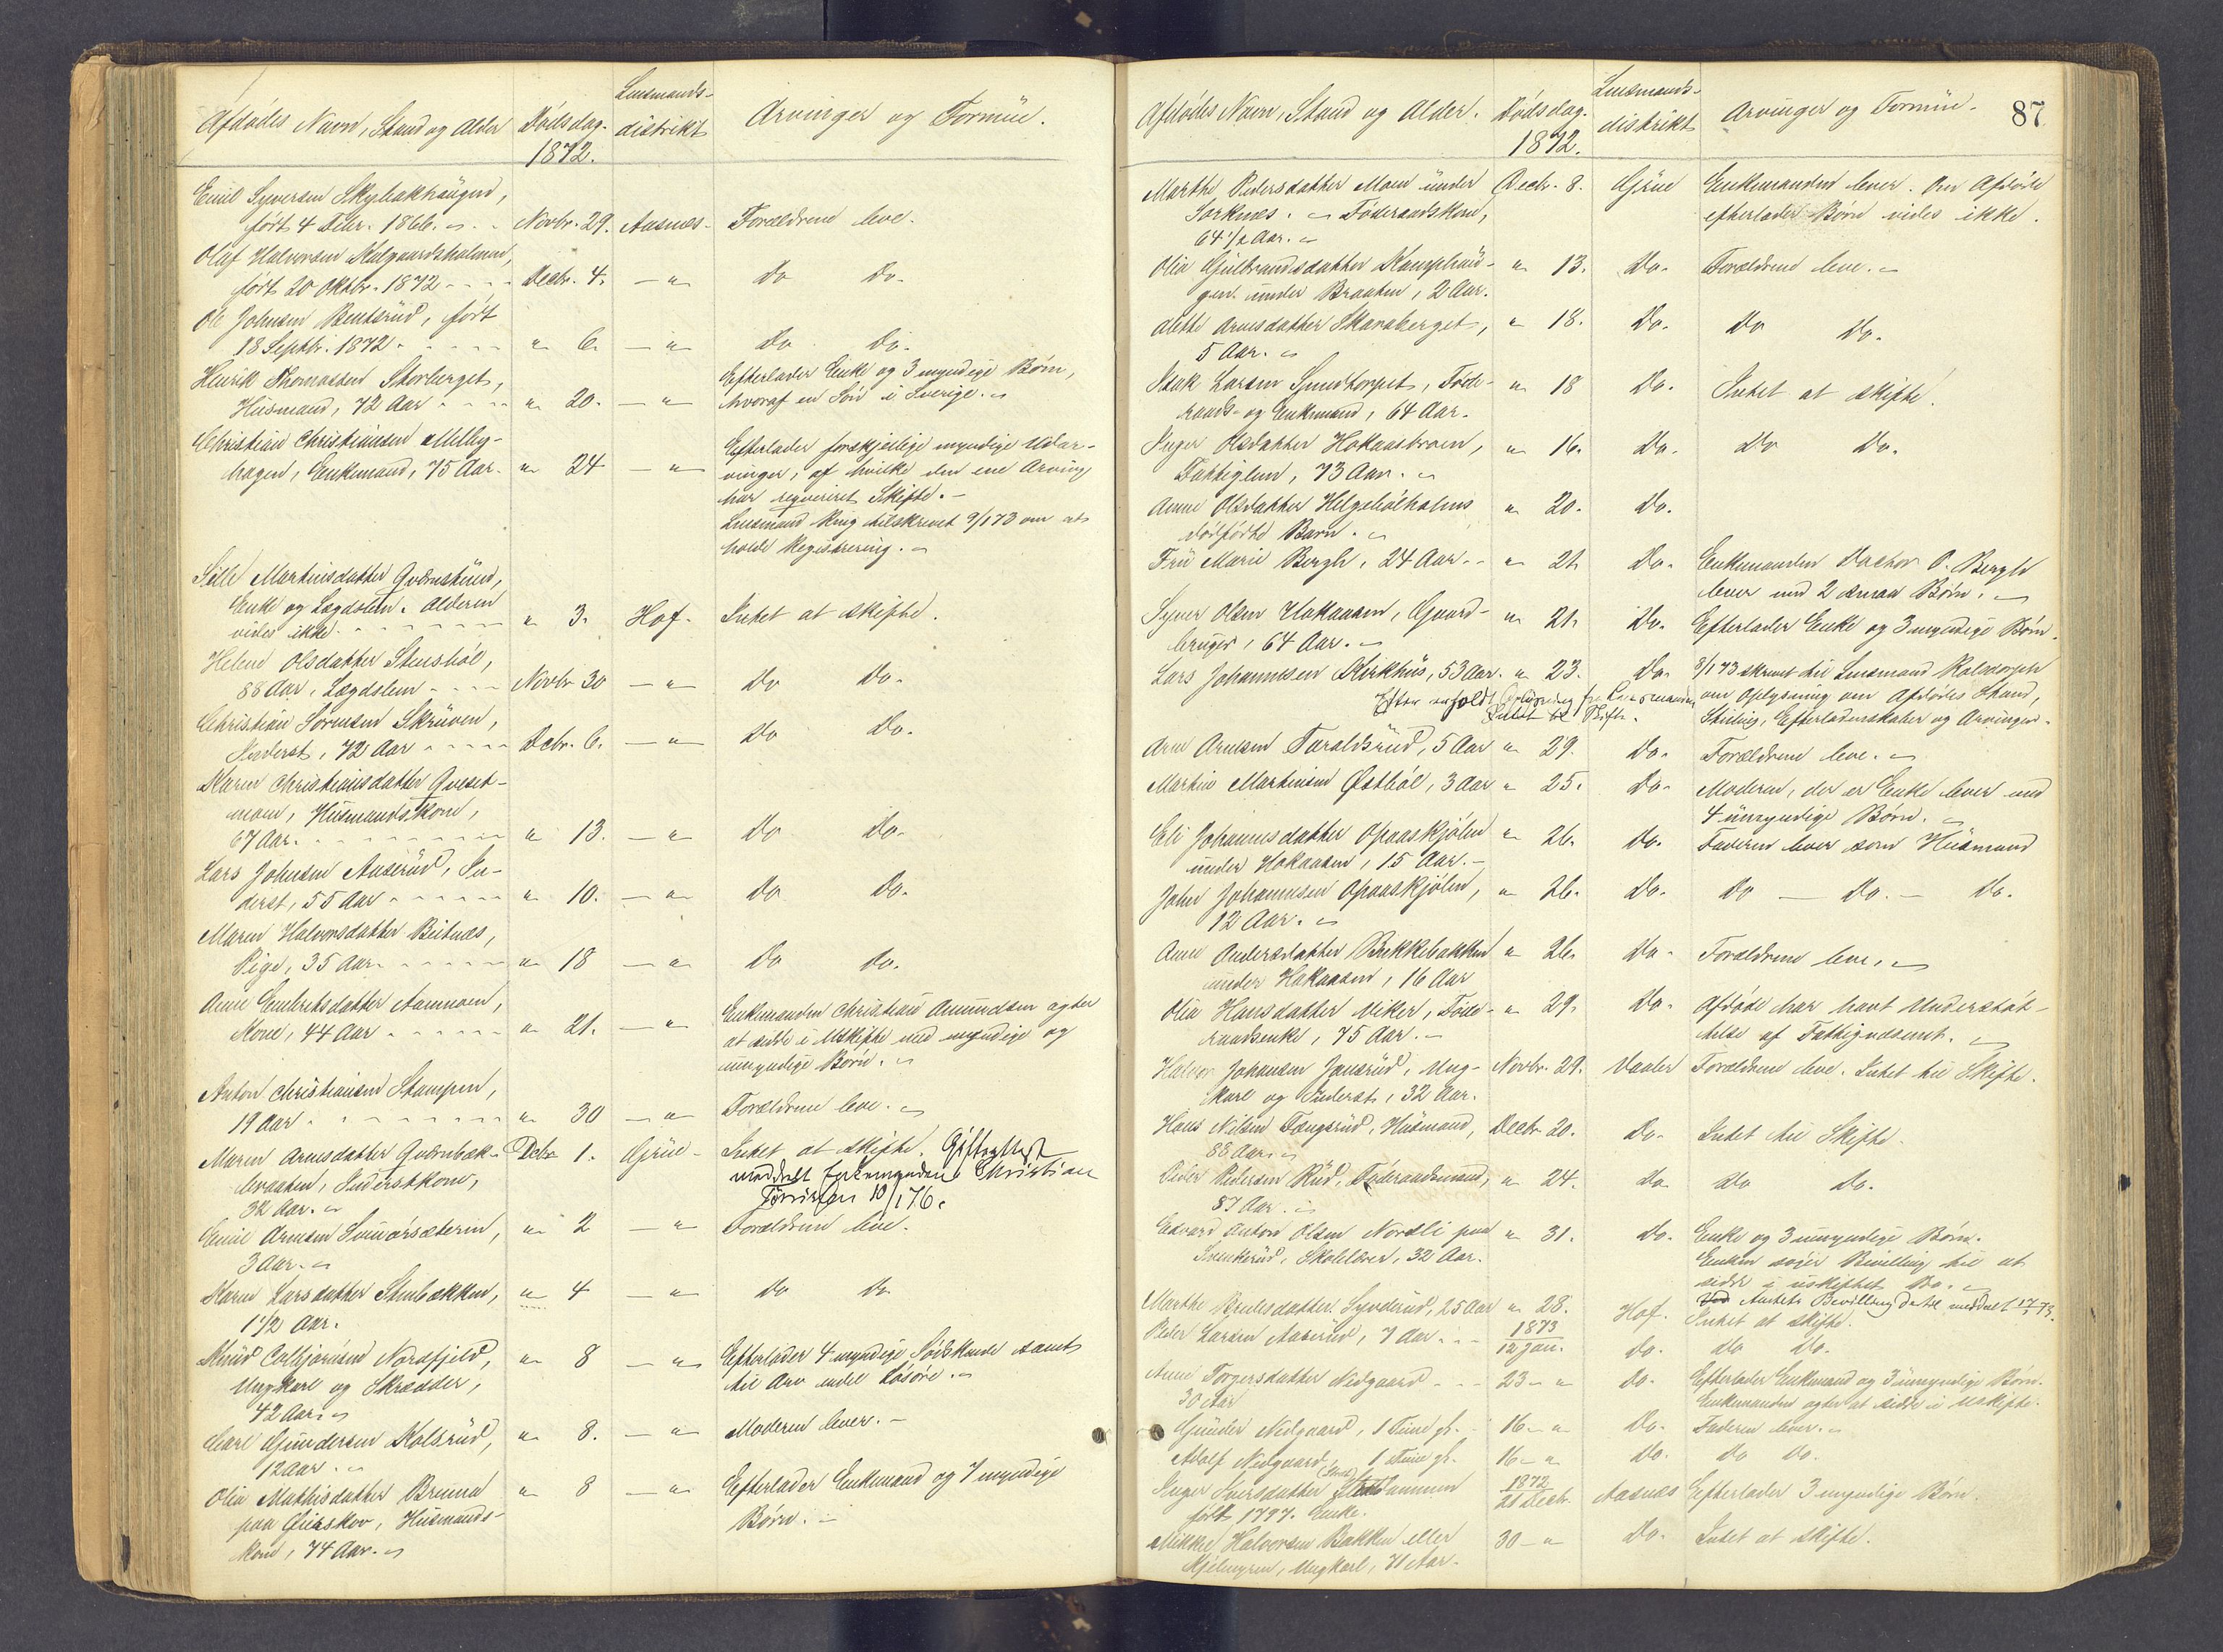 Afdødes Navn, Stand og Alder
Dødsdag.
1872.
Lensmands-
distrikt
Arvinger og Formue.
Emil Syversen Skybakhaugen,
født 4 Debr. 1866. Novbr. 29. Aasnæs. Forældrene leve.
Olaf Halvorsen Kulgaardsholmen,
født 20 Oktbr. 1872 Decbr. 4. — " Do Do.
Ole Johnsen Bentsrud, født
18 Septbr. 1872 " 6. — " Do Do.
Henrik Thomassen Storberget,
Husmand, 72 Aar " 20. — "
Efterlader Enke og 3 myndige Børn,
hvoraf en Søn i Sverige.
Christian Christiansen Melby-
hagen, Enkemand, 75 Aar. " 24 — "
Efterlader forskjellige myndige Udar-
vinger, af hvilke den ene Arving
har reqvireret Skifte. —
Lensmand Ring tilskrevet 9/1 73 om at
holde Registrering.
Sille Martinsdatter Qværnstuen,
Enke og Lægdslem. Alderen
vides ikke " 3. Hof. Intet at skifte.
Helene Olsdatter Stensbøl,
88 Aar, Lægdslem Novbr 30 — " Do Do.
Christian Sørensen Skruven,
Inderst, 72 Aar Debr. 6. — " Do Do.
Karen Christiansdatter Qveset-
moen, Husmandskone,
67 Aar. " 13. — " Do Do.
Lars Johnsen Aaserud, In-
derst, 55 Aar " 10. — " Do Do.
Maren Halvorsdatter Bitnæs,
Pige, 35 Aar " 18 — " Do Do.
Anne Embretsdatter Aamoen,
Kone, 44 Aar " 21. — "
Enkemanden Christian Amundsen agter
at sidde i Uskifte med myndige og
umyndige Børn.
Anton Christiansen Stampen,
19 Aar " 30 — " Forældrene leve.
Maren Arnesdatter Qværnbæk-
braaten, Inderstkone,
32 Aar. Debr 1. Grue Intet at skifte. Giftsattest
meddelt Enkemanden Christian
10/1 76.
Emil Arnesen Smuørsæteren, " 2 — " Forældrene leve.
3 Aar.
Karen Larsdatter Stenbækken, " 4 — " Do Do.
1 1/2 Aar.
Knud Nordfjeld, " 8 — " Efterlader 4 myndige Sødskende samt
Ungkarl og Skrædder, til Arv endel Løsøre.
42 Aar.
Carl Gundersen Kolsrud, " 8. — " Moderen lever. —
12 Aar.
Olia Mathisdatter Bruna " 8 — " Efterlader Enkemand og 7 myndige
paa Gierskov, Husmands- Børn.
kone, 74 Aar.
Afdødes Navn, Stand og Alder.
Dødsdag.
1872.
Lensmands-
distrikt
Arvinger og Formue.
87
Marthe Pedersdatter Moen under Decbr. 8. Grue Enkemanden lever. Om Afdøde
Sorknæs. Føderaadskone, efterlader Børn vides ikke.
64 1/2 Aar.
Olia Gulbrandsdatter Kamphau- " 13. Do. Forældrene leve.
gen under Braaten, 2 Aar.
Alette Arnesdatter Skaraberget, " 18. Do. Do Do.
5 Aar.
Isak Larsen Smedtorpet, Føde- " 18 Do. Intet at skifte.
raads- og Enkemand, 64 Aar.
Inger Olsdatter Hokaasbroen, " 16. Do. Do Do.
Fattiglem, 73 Aar.
Anne Olsdatter Helgebølholms " 20. Do.
dødfødte Barn.
Fru Marie Bergh, 24 Aar. " 21 Do. Enkemanden O. Bergh
lever med 2 smaa Børn.
Syver Olsen Hokaasen, Gaard- " 21. Do. Efterlader Enke og 3 myndige Børn.
bruger, 64 Aar.
Lars Johannesen Kirkhus, 53 Aar. " 23. Do. 8/1 73 skrevet til Lensmand Kolastorph
Efter anholdt Oplysning fra Lensmanden om Oplysning om Afdødes Stand,
Intet til Skifte. Stilling, Efterladenskaber og Arvinger.
Arne Arnesen Taraldsrud, 5 Aar " 29. Do. Forældrene leve.
Martin Martinsen Østbøl, 3 Aar " 25. Do. Moderen, der er Enke lever med
4 umyndige Børn.
Eli Johannesdatter Opaaskjølen " 26. Do. Faderen lever som Husmand
under Hokaasen, 15 Aar.
John Johannesen Opaaskjølen, " 26. Do. Do — Do. — Do.
12 Aar.
Anne Andersdatter Bækkebakken " 26. Do. Forældrene leve.
under Hokaasen, 16 Aar
Olia Hansdatter Viker, Føde- " 29. Do. Afdøde har havt Understøt-
raadsenke, 75 Aar. — telse af Fattigvæsenet.
Halvor Johansen Jansrud, Ung- Novbr. 29. Vaaler Forældrene leve. Intet til Skifte.
karl og Inderst, 32 Aar.
Hans Nilsen Tangsrud, Husmand, Decbr 20. Do. Intet til Skifte.
88 Aar.
Peder Pedersen Rud, Føderaadsmand, " 24. Do Do Do.
87 Aar.
Edvard Anton Olsen Nordli paa " 31. Do. Enke og 3 umyndige Børn.
Skolelærer, 32 Aar. Enken søger Bevilling til at
sidde i uskiftet Bo.
Amtets Bevilling dertil meddelt 17/3 73.
Marthe Syverud, 25 Aar " 28. Hof. Intet at skifte.
Peder Larsen Aaserud, 7 Aar 1873
12 Jan. Do. Do Do.
Anne Torgersdatter Nedgaard 23 — " Do. Efterlader Enkemand og 3 umyndige Børn.
30 Aar Enkemanden agter at sidde i Uskifte.
Gunder Nedgaard, 1 Time gl. 16 — " Do. Faderen lever.
Adolf Nedgaard, 1 Time gl. 16 — " Do. Do Do.
Inger Iversdatter 1872
21 Decbr. Aasnæs Efterlader 3 myndige Børn.
født 1797. Enke.
Mikkel Halvorsen Bakken eller 30 — " Do. Intet at skifte.
Kjølmyren, Ungkarl, 71 Aar.